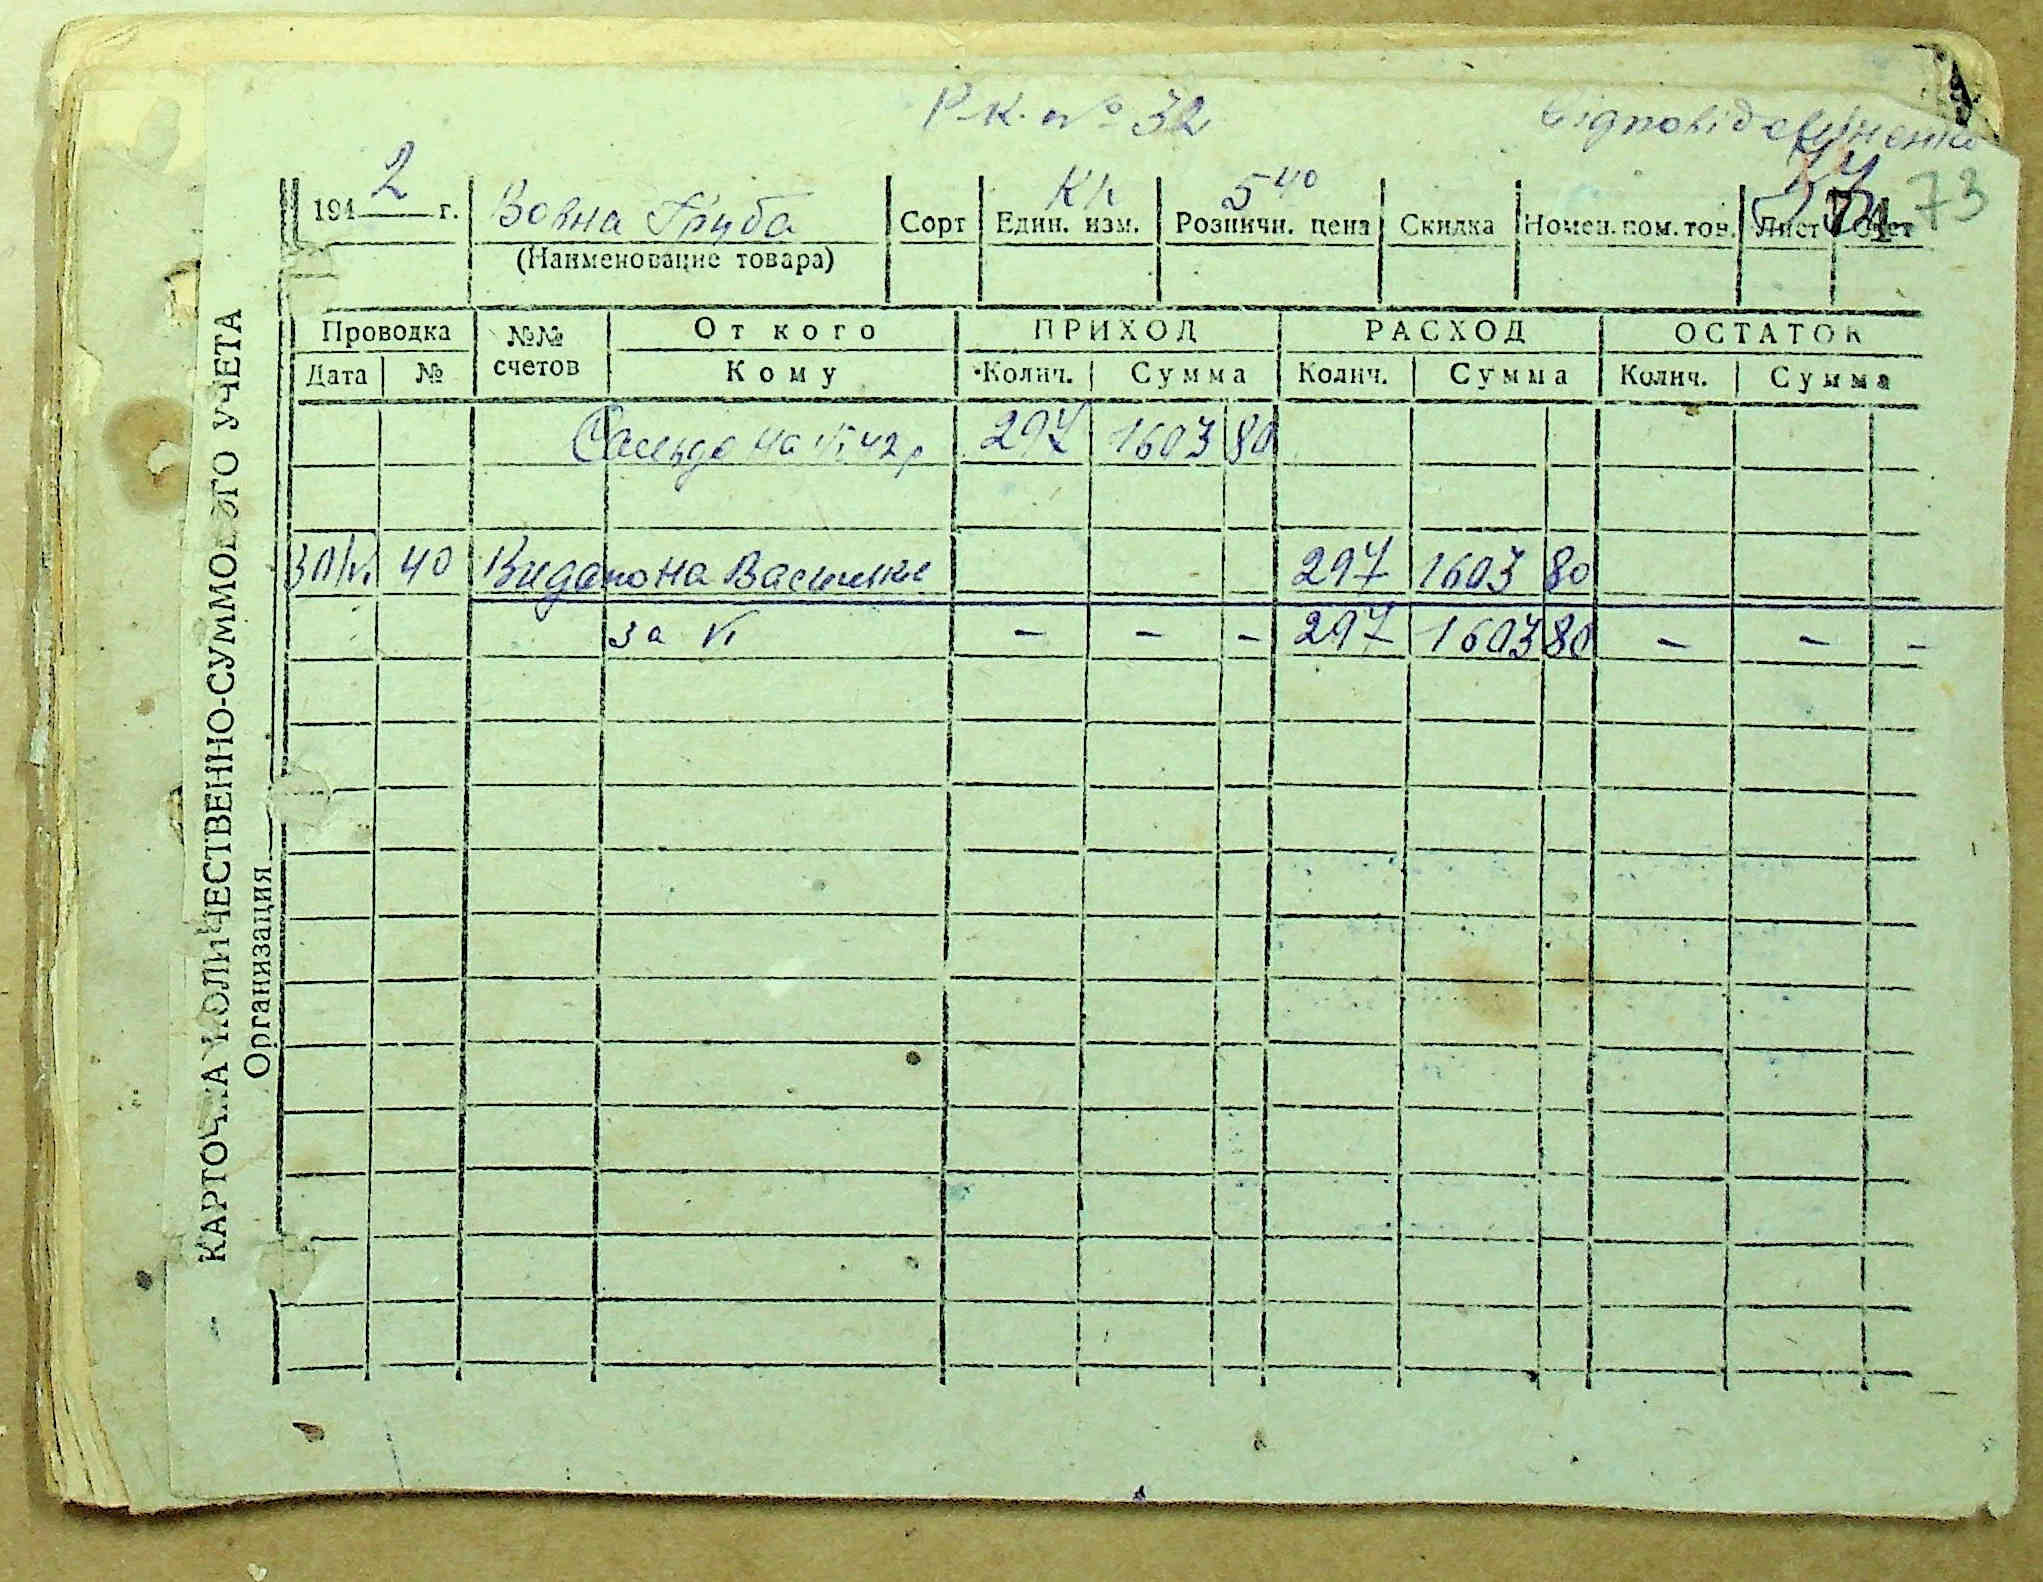 Р-к. № 32
1942 г. Вовна Груба Сорт Един. изм. Кг Розничн. цена 5 40 Скидка Номен. ном. тов. Лист Счет 73
(Наименование товара)
КАРТОЧКА КОЛИЧЕСТВЕННО-СУММОВОГО УЧЕТА
Организация
Проводка №№ счетов От кого ПРИХОД РАСХОД ОСТАТОК
Дата № Кому Колич. Сумма Колич. Сумма Колич. Сумма
Сальдо на VI 42 р 297 1603 80
30/VI 40 Видано на 297 1603 80
за VI - - - 297 1603 80 - - -